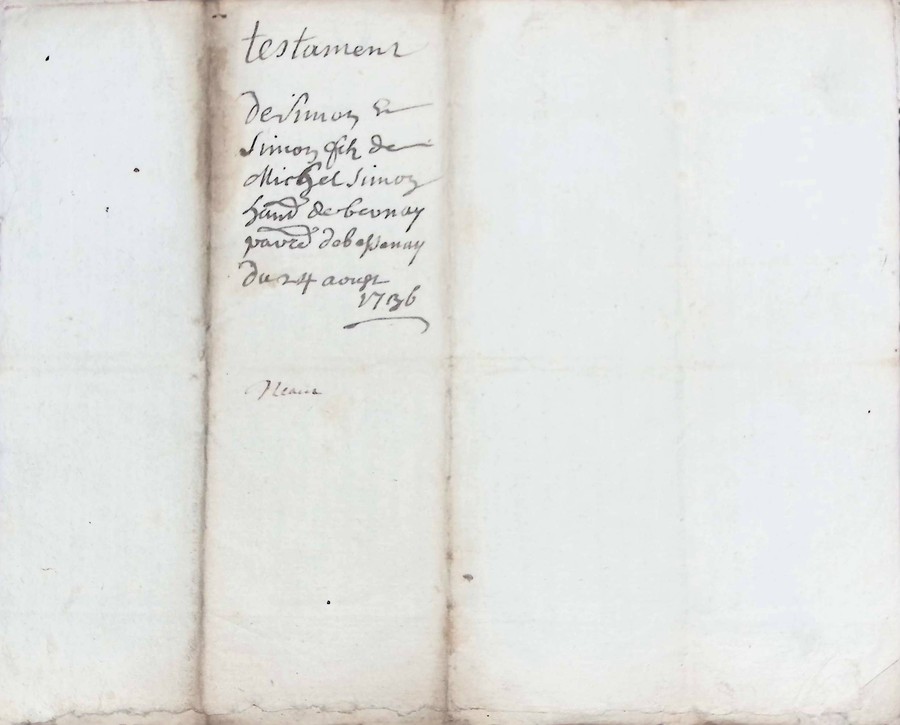 testament
de Simon &
Simon fils de
Michel Simon
hand de bernay
parrd de bessenay
du 24 aoust
1736